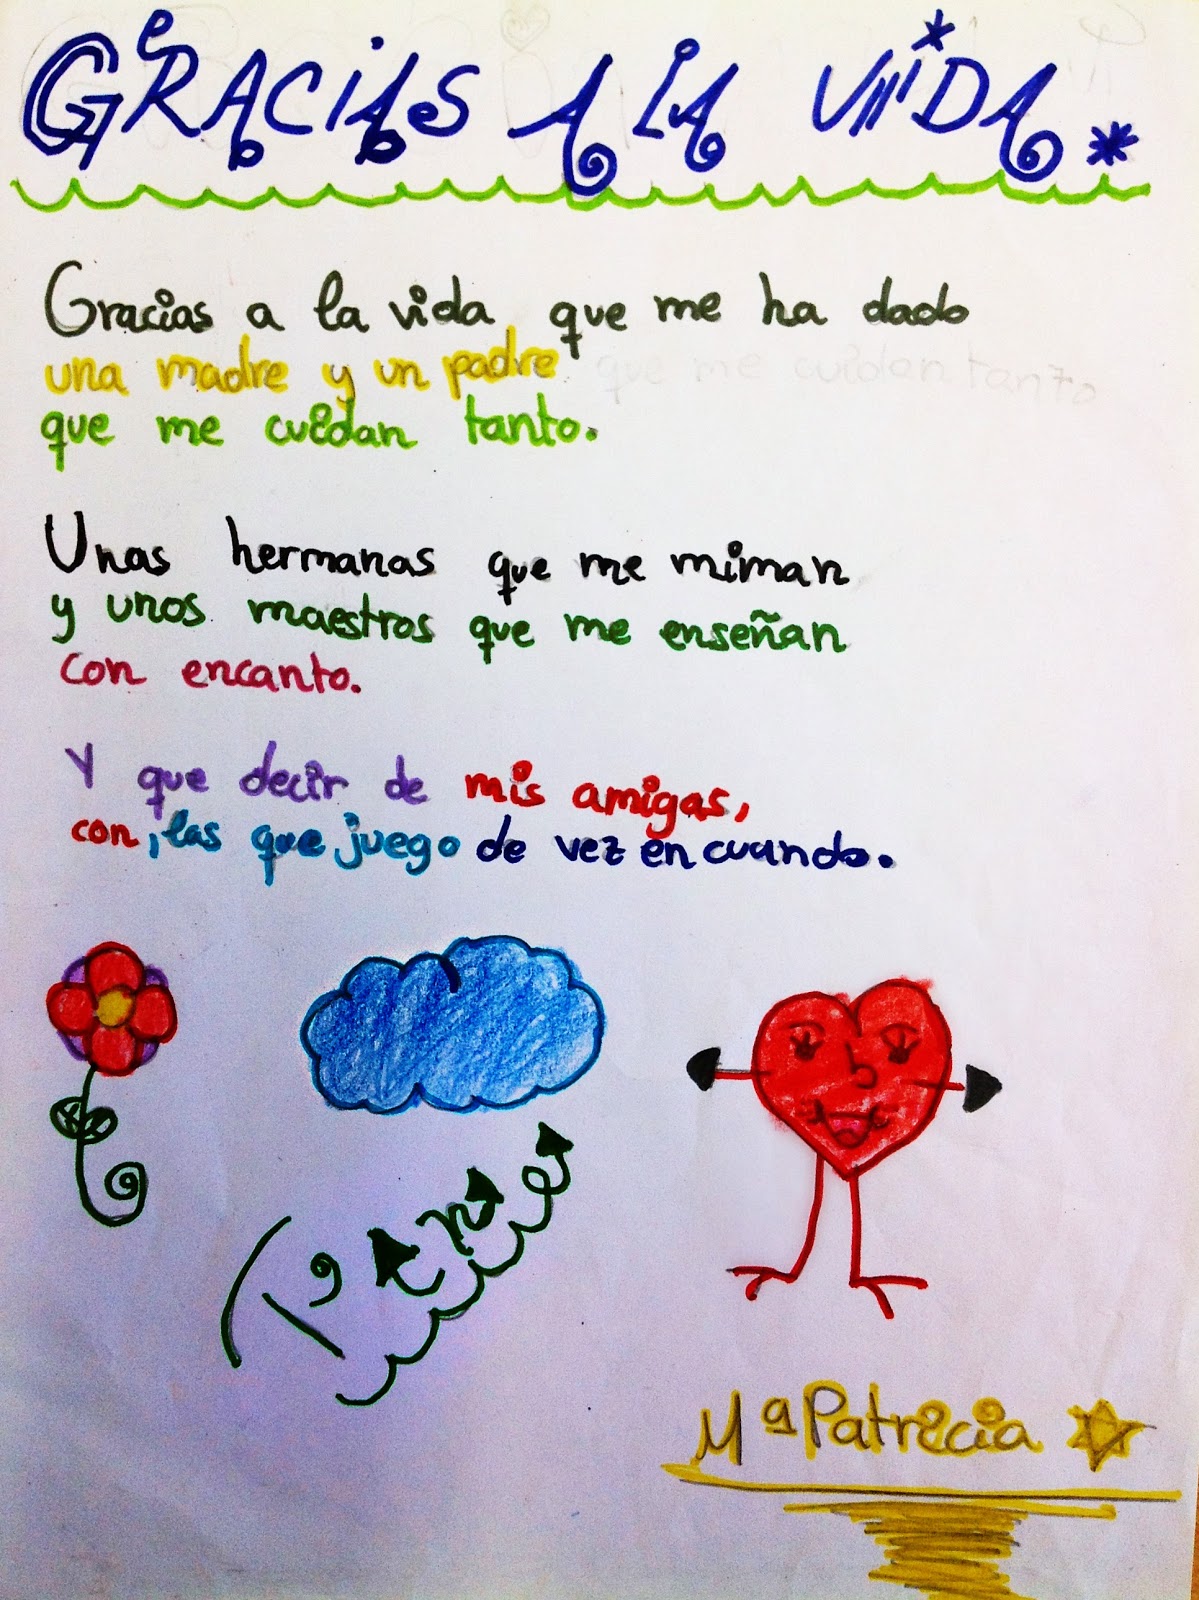 GRACIAS A LA VIDA.
Gracias a la vida que me ha dado
una madre y un padre que me cuidan tanto
que me cuidan tanto.
Unas hermanas que me miman
y unos maestros que me enseñan
con encanto.
Y que decir de mis amigas,
con, las que juego de vez en cuando.
Mª Patricia